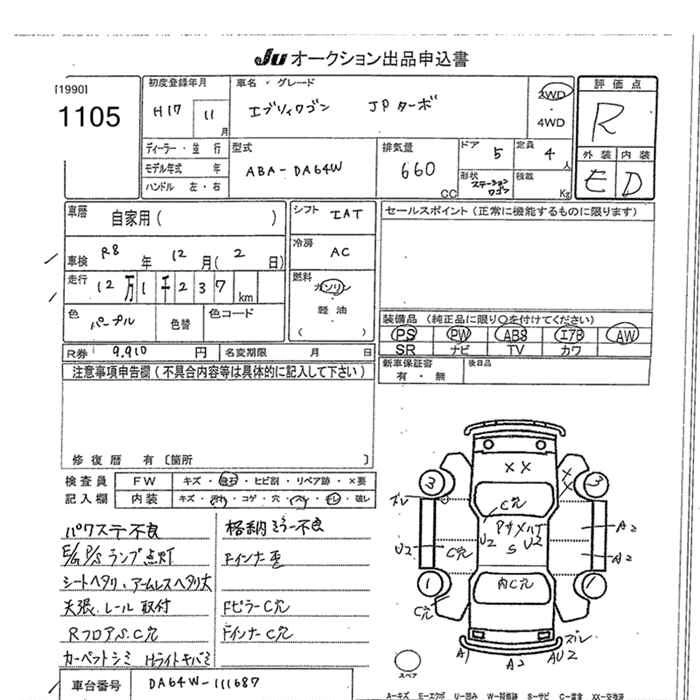 JU オークション出品申込書
[1990]
1105
初度登録年月
H17 11月
車名・グレード
エブリィワゴン JPターボ
2WD
4WD
評価点
R
外装 内装
E D
ディーラー・並 行
モデル年式 年
ハンドル 左・右
型式
ABA-DA64W
排気量
660 CC
ドア 5
定員 4人
形状 ステーションワゴン
積載 Kg
車歴
自家用( )
シフト IAT
セールスポイント(正常に機能するものに限ります)
車検 R8年 12月(2日)
冷房 AC
走行 12万1千237km
燃料 ガソリン
軽油
( )
色 パープル
色替
色コード
装備品(純正品に限り○を付けてください)
PS PW ABS エアB AW
SR ナビ TV カワ
R券 9.910円
名変期限 月 日
新車保証書
有・無
後日品
注意事項申告欄(不具合内容等は具体的に記入して下さい)
修復歴 有〔箇所 〕
検査員
記入欄
FW キズ・飛石・ヒビ割・リペア跡・×要
内装 キズ・汚れ・コゲ・穴・スレ・キレ・破レ
パワステ不良
E/G P/S ランプ点灯
シートヘタリ、アームレスヘタリ大
天張、レール取付
RフロアS、C穴
カーペットシミ Hライトキバミ
格納ミラー不良
Fインナー歪
FピラーC穴
FインナーC穴
車台番号 DA64W-111687
XX
XX
3
3
ズレ
C穴
PサメハゲS
U2
U2
U2
C穴
A2
A2
1
1
内C穴
C穴
A1
A2
AU2
ズレ
スペア
A-キズ E-エクボ U-凹み W-補修跡 S-サビ C-腐食 XX-交換済